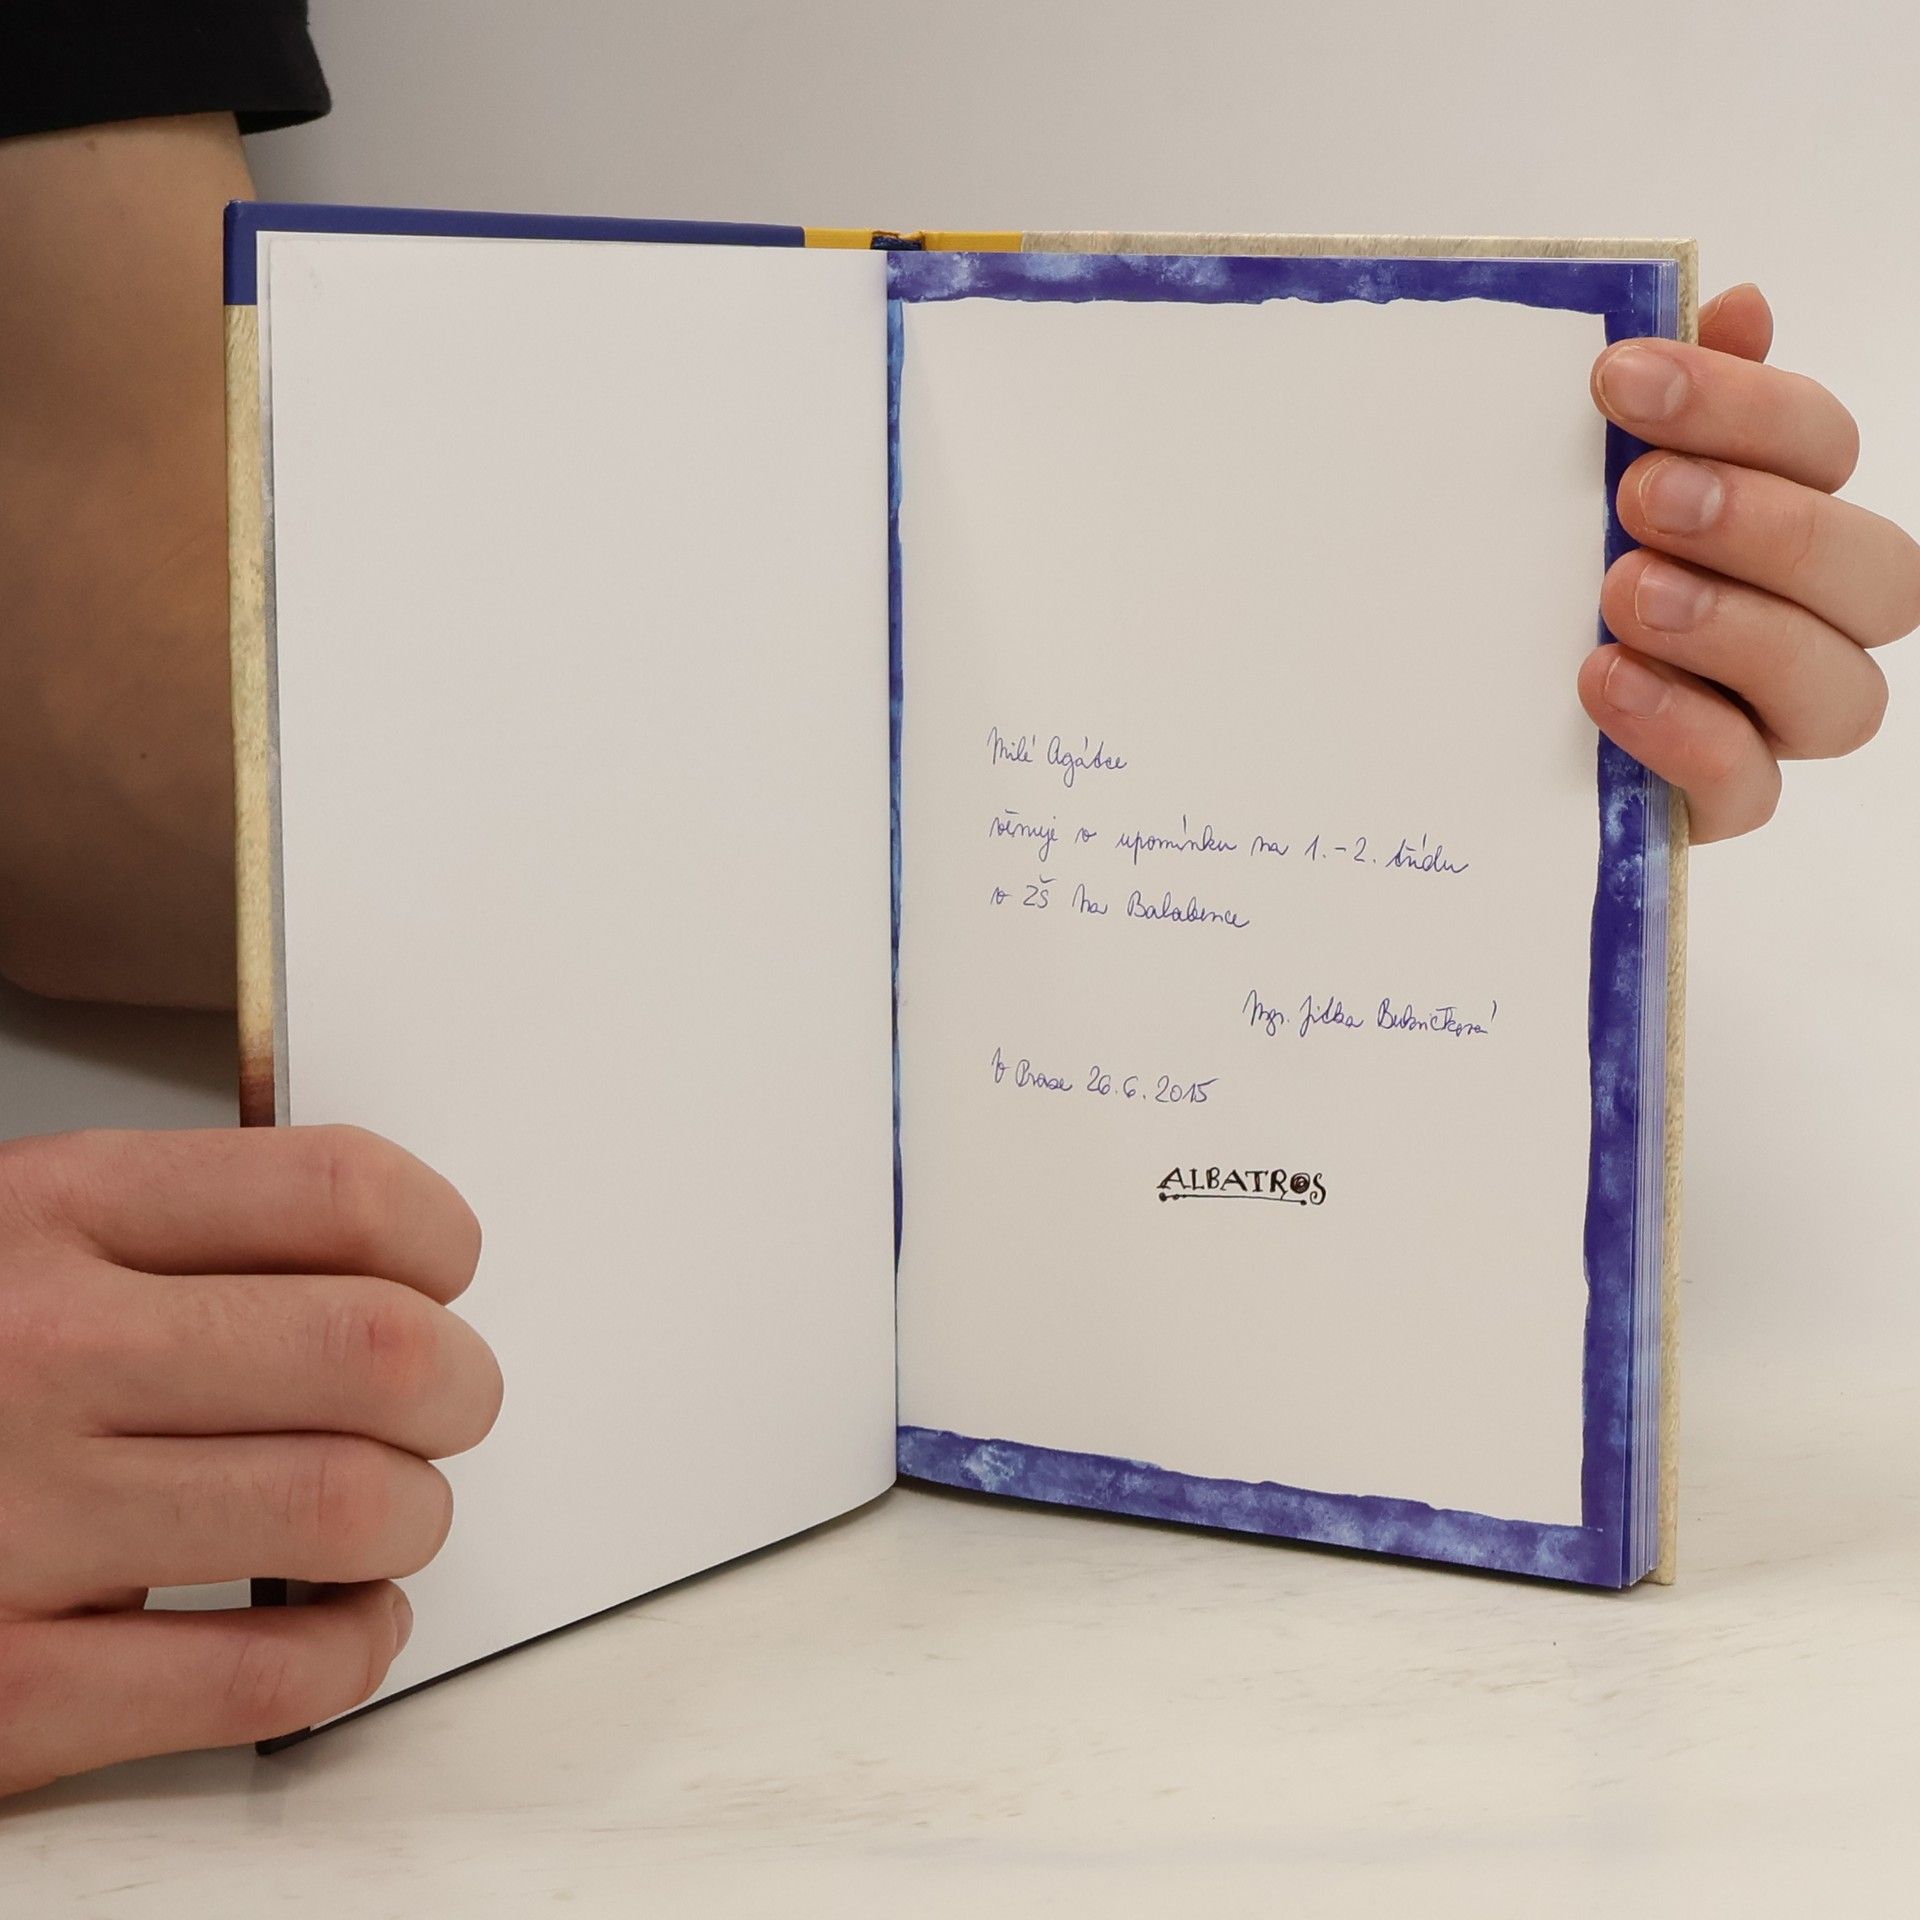 Milé Agátce
věnuje v upomínku na 1.-2. třídu
v ZŠ Na Balabence
Mgr. Jitka
V Praze 26.6.2015
ALBATROS